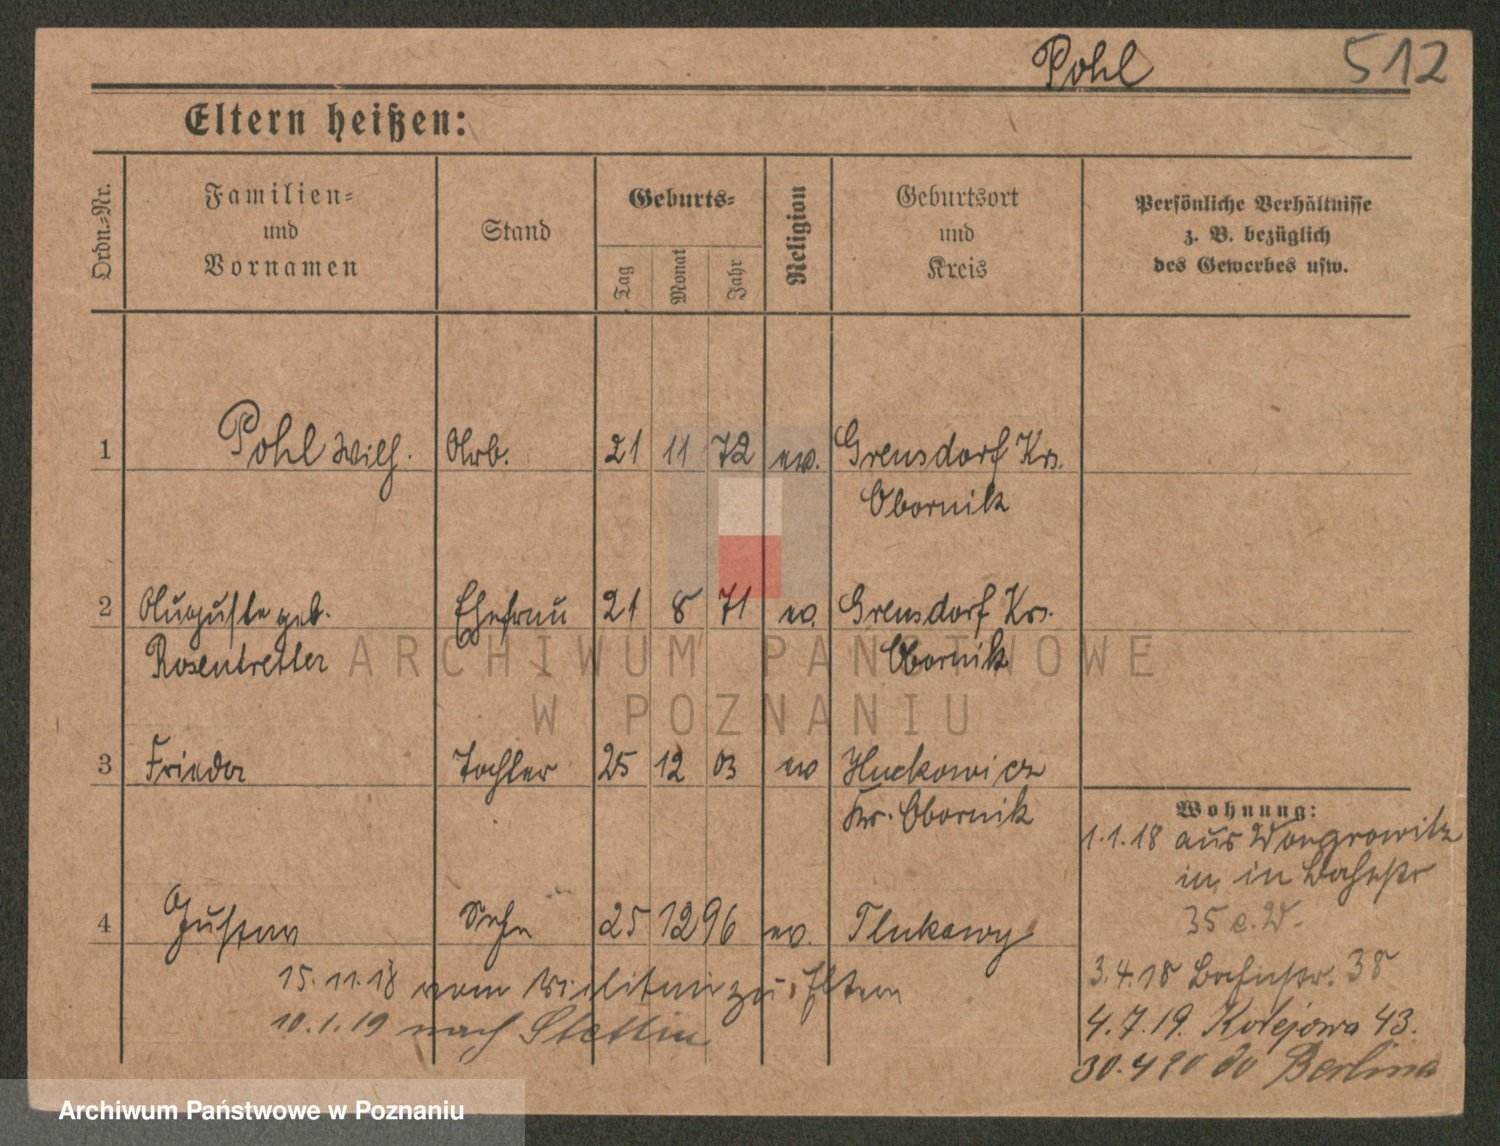 Pohl 512
Eltern heißen:
Ordn.-Nr.
Familien-
und
Vornamen
Stand
Geburts-
Tag
Monat
Jahr
Religion
Geburtsort
und
Kreis
Persönliche Verhältnisse
z. B. bezüglich
des Gewerbes usw.
1 Pohl Wilh. Arb. 21 11 72 ev. Grensdorf Krs.
Obornik
2 Auguste geb. Ehefrau 21 8 71 ev. Grensdorf Krs.
Rosentretter Obornik
3 Frieda Tochter 25 12 03 ev
Kr. Obornik
4 Gustav Sohn 25 12 96 ev. Tlukawy
15.11.18 vom Militär zu Eltern
10.1.19 nach Stettin
Wohnung:
1.1.18 aus Wongrowitz
in Bahnstr
35 b. W.
3.4.18 Bahnstr. 38
4.7.19. Kolejowa 43.
30.4 20 do Berlina
ARCHIWUM PAŃSTWOWE
W POZNANIU
Archiwum Państwowe w Poznaniu